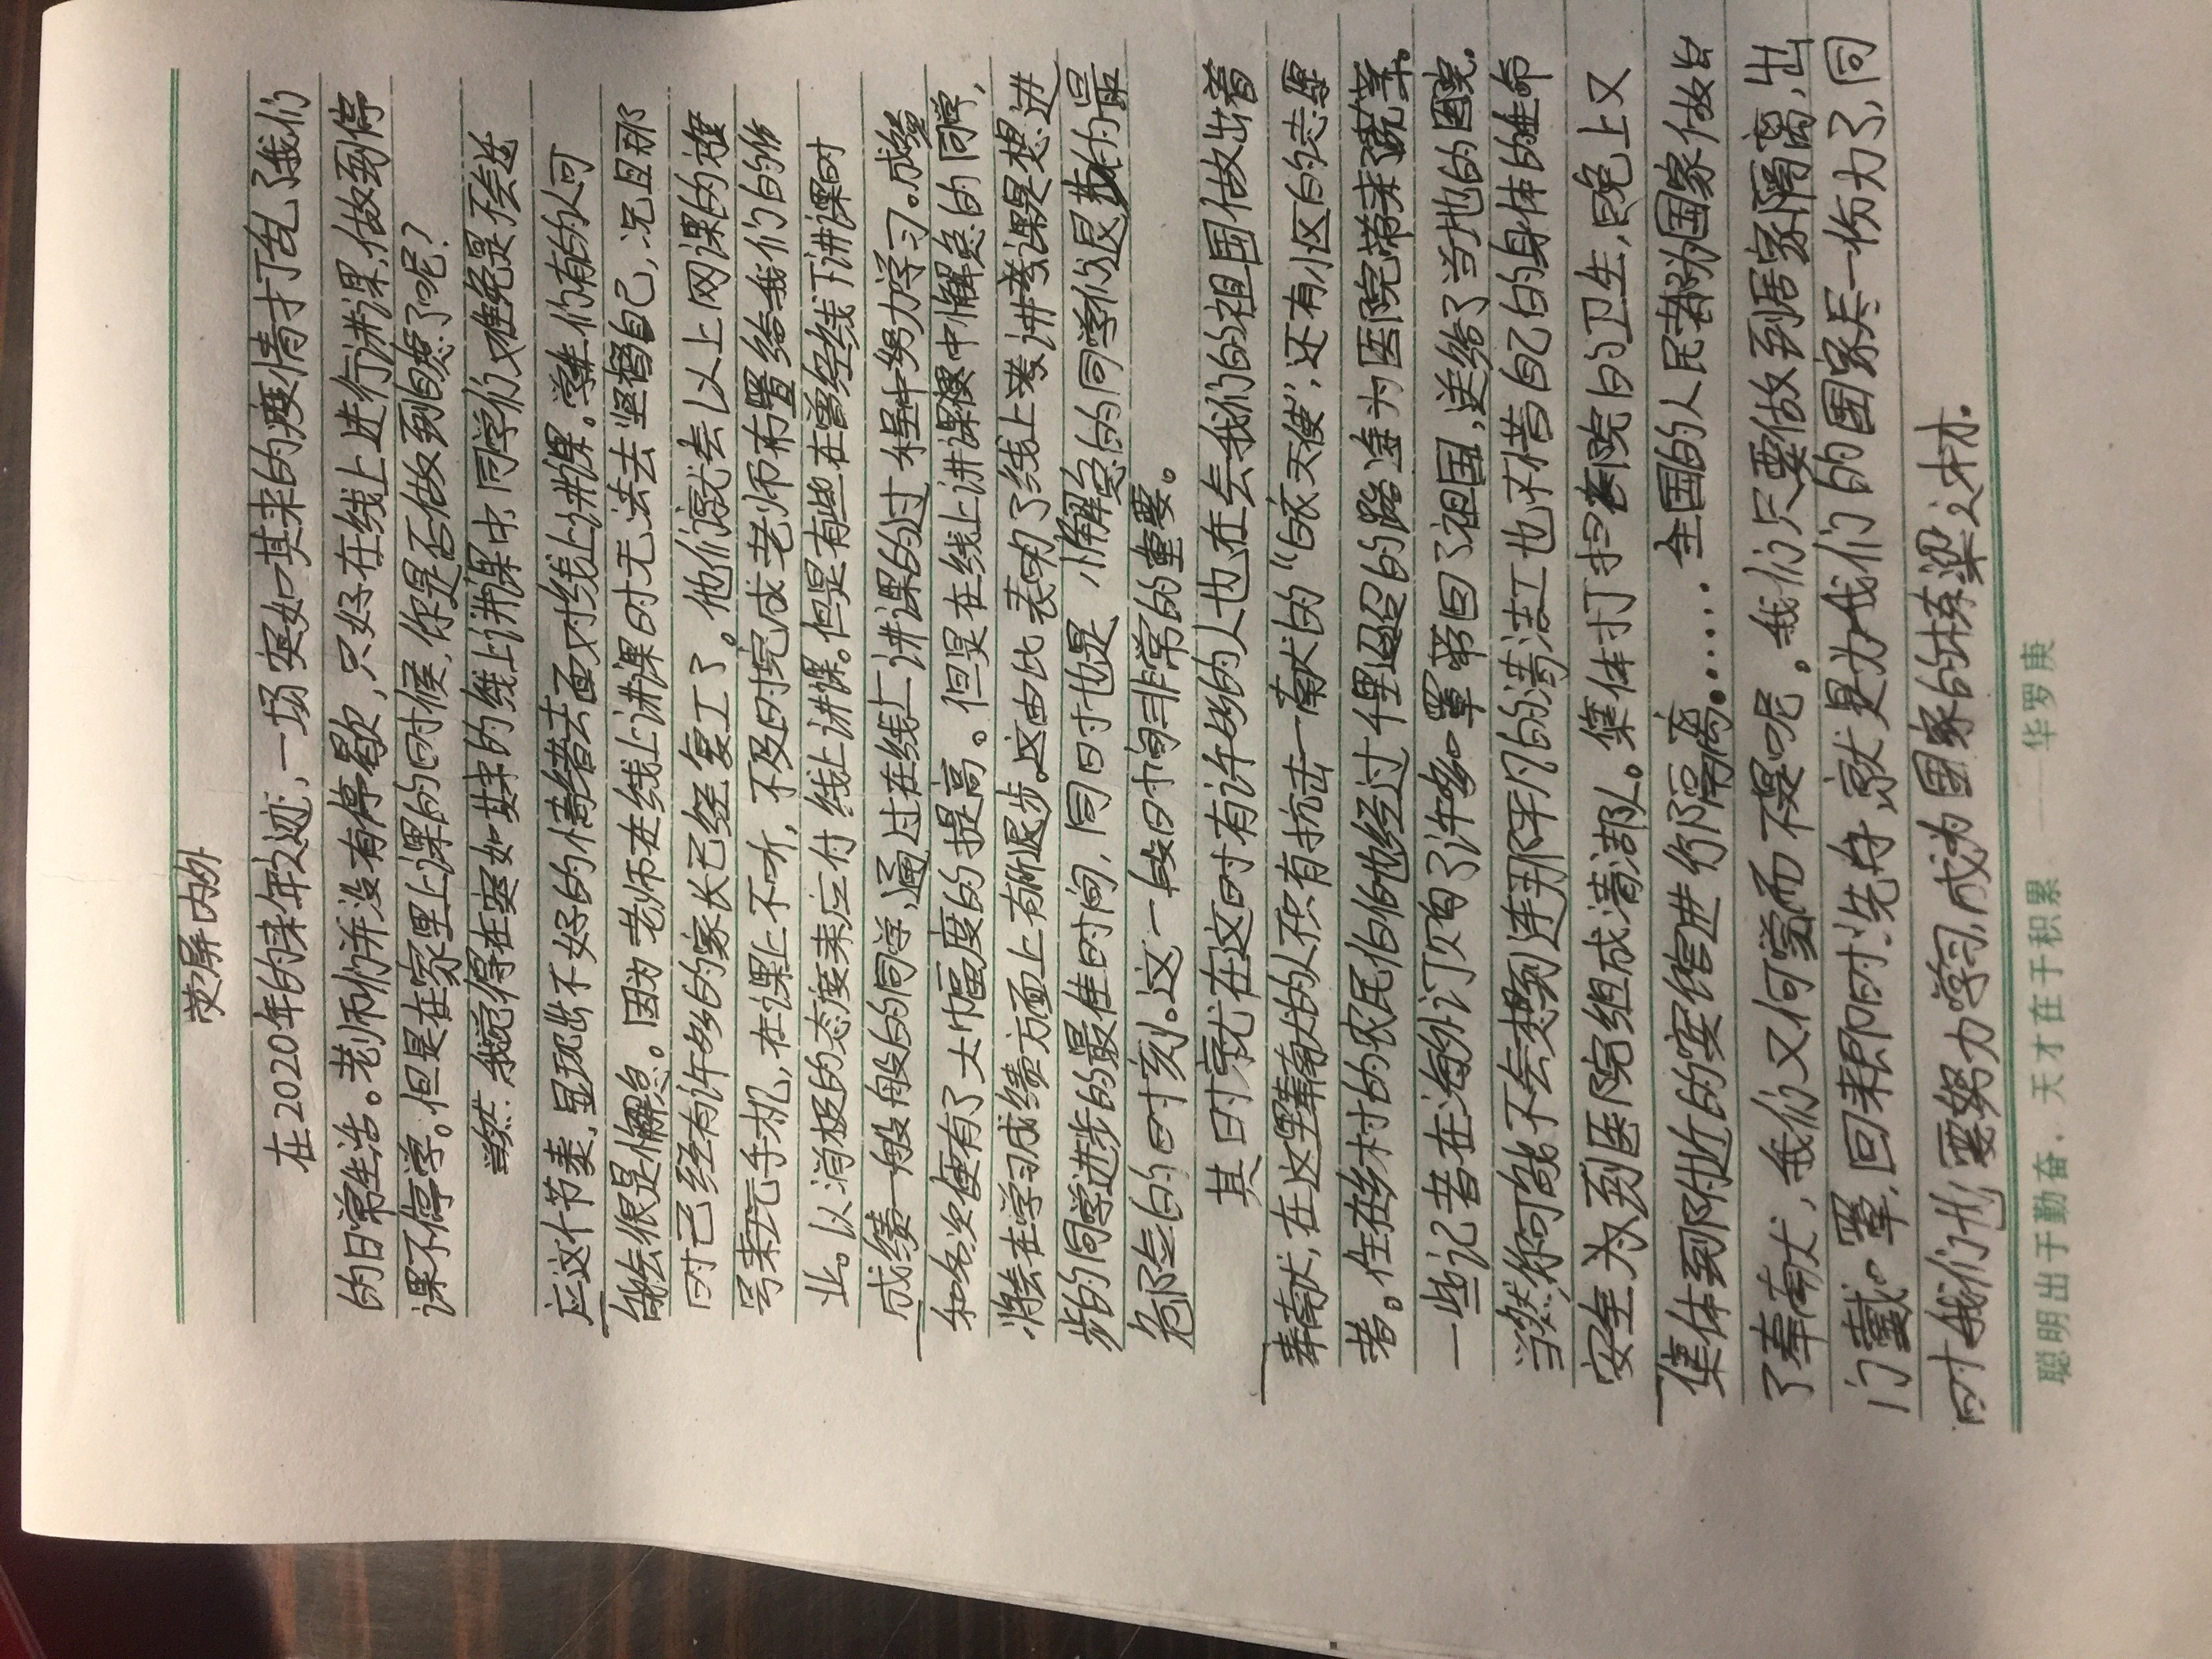 荧屏内外
在2020年的来年之迹，一场突如其来的疫情打乱了我们
的日常生活。老师们并没有停歇，只好在线上进行讲课，做到停
课不停学。但是在家里上课的时候，你是否做到自愿了呢？
当然，我觉得在突如其来的线上讲课中，同学们又难免是不会适
应这个节奏，显现出不好的情绪去面对线上讲课。学生们有的人可
能会很是懈怠。因为老师在线上讲课时无法去坚督自己，况且那
时已经有许多的家长已经复工了。他们就会以上网课的旗
号来玩手机，在课上不听，不及时完成老师布置给我们的作
业。以消极的态度来应付线上讲课。但是有些在曾经线下讲课时
成绩一般般的同学，通过在线上讲课的过程中努力学习。成绩
和名次便有了大巾畐度的提高。但是在线上讲课中懈怠的同学，
将会在学习成绩方面上有所退步。这由此表明了线上讲课是想进
步的同学进步的最佳时间，同时也是懈怠的同学你退步的最
危险的时刻。这一段时间非常的重要。
其时就在这时有许多的人也在会我们的祖国做出着
奉献，在这里奉献的人不只有抗击一南犬的“白衣天使”，还有小区的志愿
者。住在乡村的农民伯伯也经过千里迢迢的路途为医院带来了蔬菜。
一些记者在海外订购了许多口罩带回了祖国，送给了当地的医院。
当然你可能不会想到连那平凡的清洁工也不惜自己的身体的生命
安全为到医院组成清洁部队。集体打扫医院的卫生，晚上又
集体到附近的宾馆进行隔离。……全国的人民都为国家做出
了奉南犬，我们又何尝而不是呢。我们只要做到居家隔离，出
门戴口罩，回来即时洗手，就是为我们的国家尽一份力了，同
时我们也要努力学习，成为国家的栋梁之材。
聪明出于勤奋，天才在于积累——华罗庚